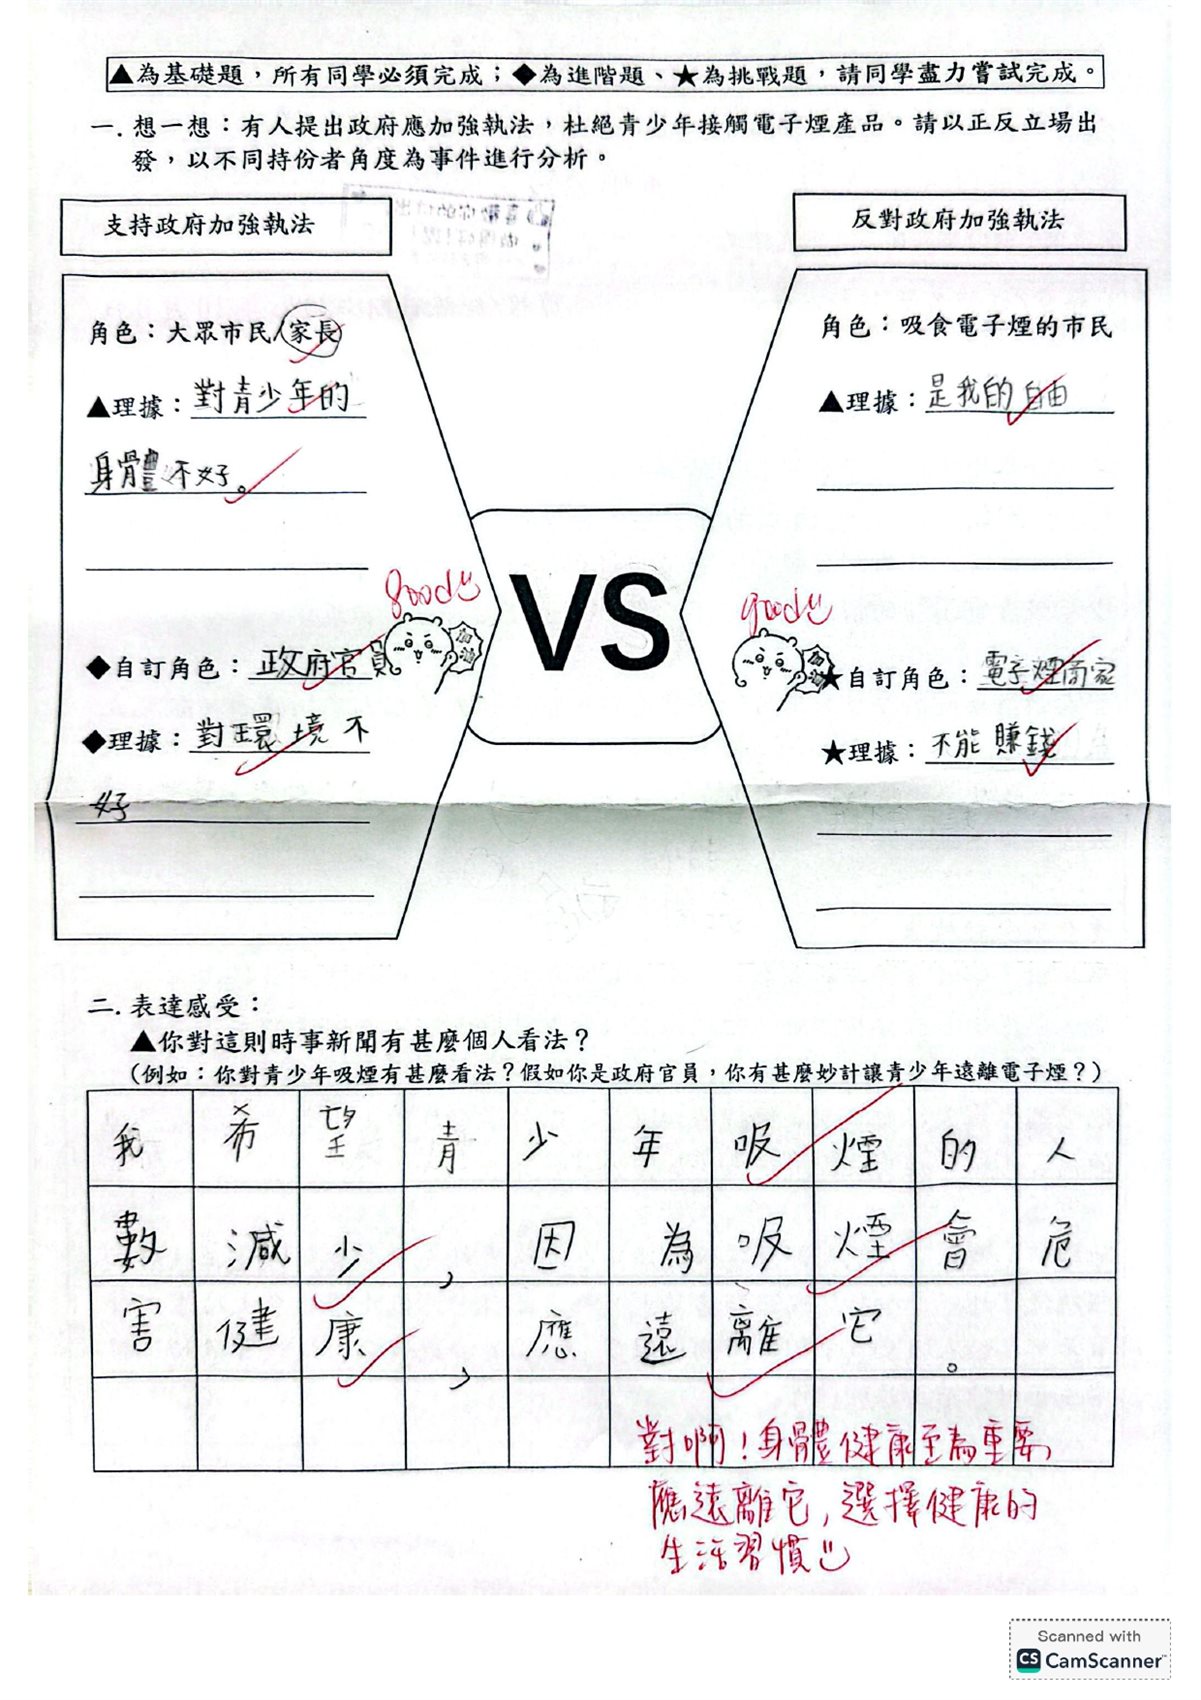 ▲為基礎題，所有同學必須完成；◆為進階題、★為挑戰題，請同學盡力嘗試完成。
一. 想一想：有人提出政府應加強執法，杜絕青少年接觸電子煙產品。請以正反立場出
發，以不同持份者角度為事件進行分析。
支持政府加強執法
角色：大眾市民/家長
▲理據：對青少年的
身體不好。
good
◆自訂角色：政府官員
加油
◆理據：對環境不
好
VS
反對政府加強執法
角色：吸食電子煙的市民
▲理據：是我的自由
good
加油
★自訂角色：電子煙商家
★理據：不能賺錢
二. 表達感受：
▲你對這則時事新聞有甚麼個人看法？
(例如：你對青少年吸煙有甚麼看法？假如你是政府官員，你有甚麼妙計讓青少年遠離電子煙？)
我希望青少年吸煙的人
數減少，因為吸煙會危
害健康，應遠離它。
對啊！身體健康至為重要，
應遠離它，選擇健康的
生活習慣
Scanned with
CS CamScanner